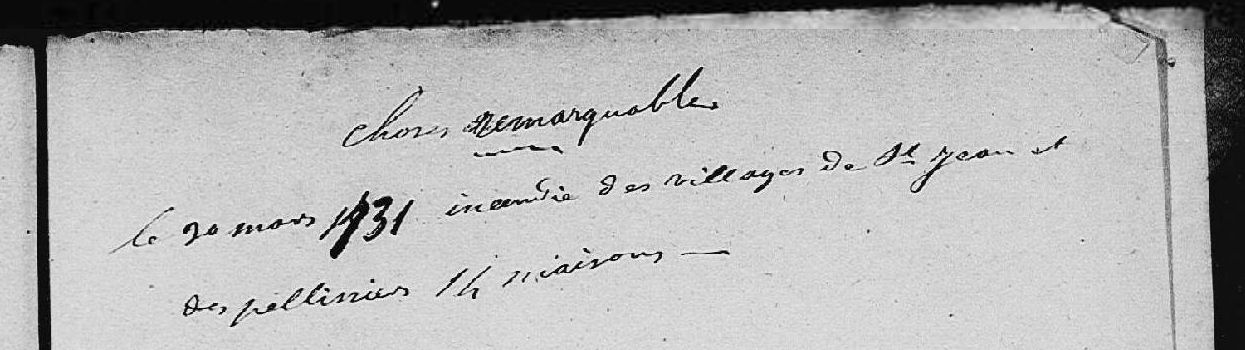 choses remarquables
le 20 mars 1731 incendie des villages de St jean et
des pellissiers 14 maisons —